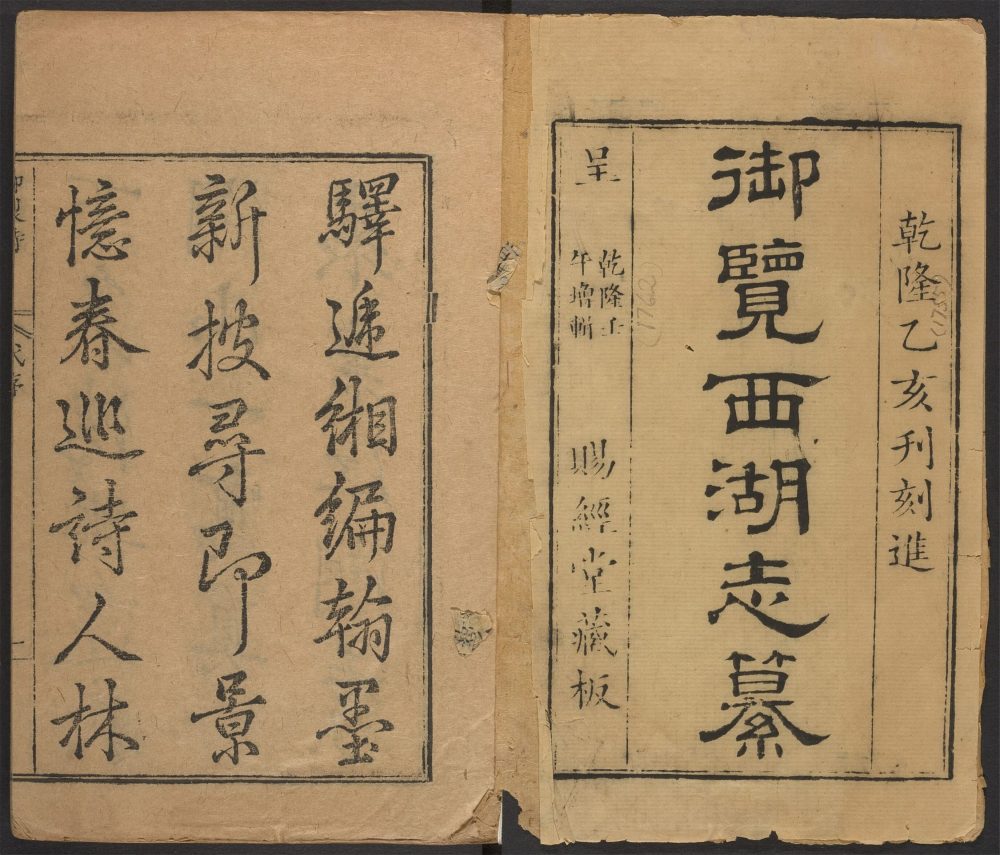 乾隆乙亥刊刻進
(1755)
御覽西湖志纂
呈
乾隆壬
午增輯
(1762)
賜經堂藏板
驛遞緗編翰墨
新披尋即景
憶春巡詩人林